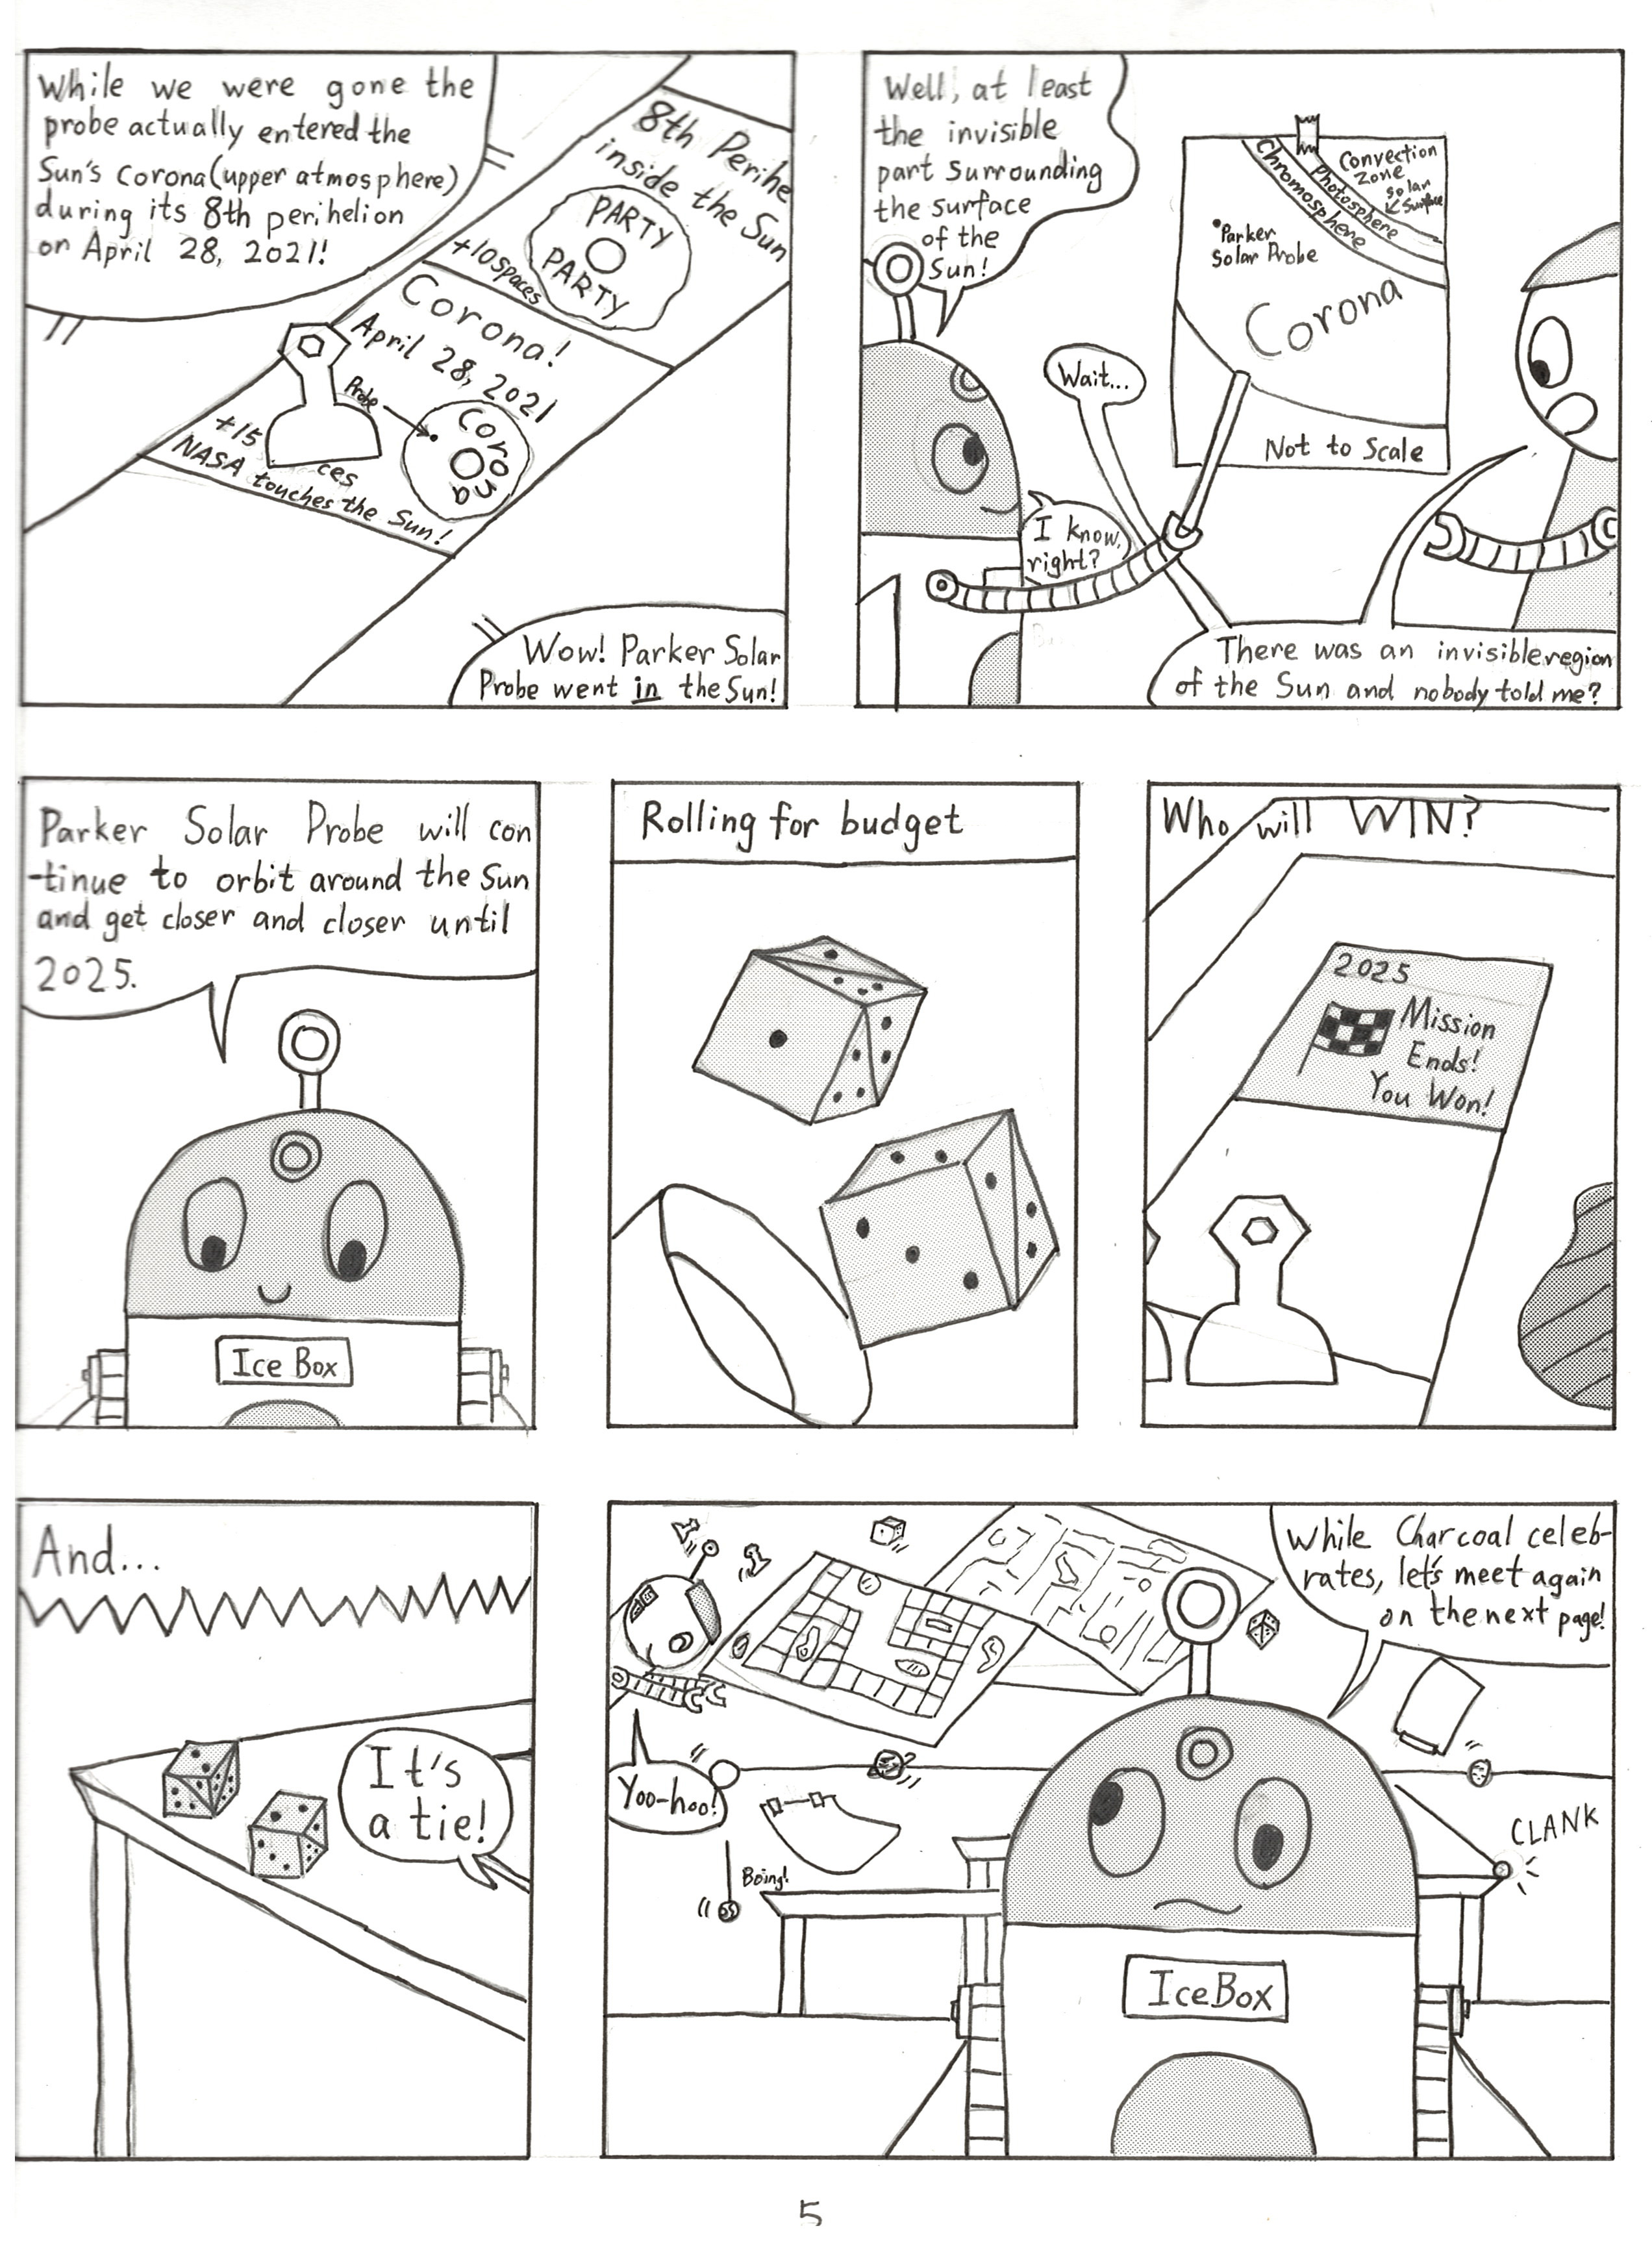 While we were gone the
probe actually entered the
Sun's Corona (upper atmosphere)
during its 8th perihelion
on April 28, 2021!
8th Perihe
inside the Sun
PARTY
PARTY
+10 spaces
Corona!
April 28, 2021
Probe
Corona
+15 ces
NASA touches the Sun!
Wow! Parker Solar
Probe went in the Sun!
Well, at least
the invisible
part surrounding
the surface
of the
Sun!
Convection
Zone
Solar
Surface
Photosphere
Chromosphere
Parker
Solar Probe
Corona
Not to Scale
Wait...
I know,
right?
There was an invisible region
of the Sun and nobody told me?
Parker Solar Probe will con
-tinue to orbit around the Sun
and get closer and closer until
2025.
Ice Box
Rolling for budget
Who will WIN?
2025
Mission
Ends!
You Won!
And...
It's
a tie!
While Charcoal celeb-
rates, let's meet again
on the next page!
Yoo-hoo!
Boing!
CLANK
IceBox
5